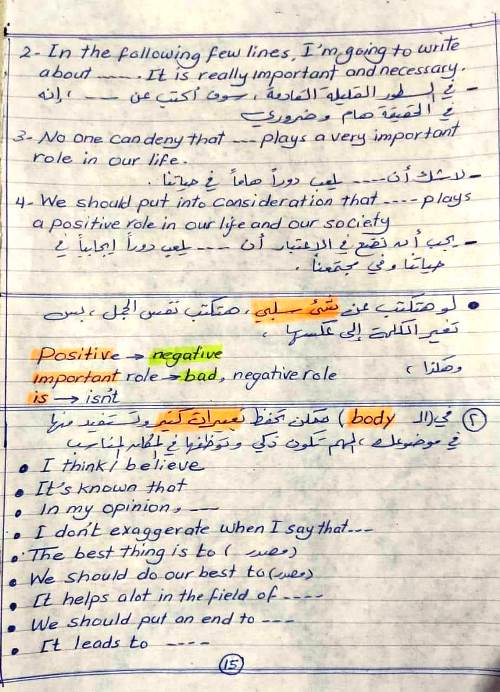 2- In the following few lines, I'm going to write
about ..... . It is really important and necessary.
- في السطور القليلة القادمة، سوف أكتب عن ---- ، إنه
في الحقيقة هام وضروري
3- No one can deny that --- plays a very important
role in our life.
- لا شك أن ---- يلعب دوراً هاماً في حياتنا.
4- We should put into consideration that ---- plays
a positive role in our life and our society
- يجب أن نضع في الإعتبار أن ---- يلعب دوراً إيجابياً في
حياتنا وفي مجتمعنا.
• لو هتكتب عن شئ سلبي، هتكتب نفس الجمل، بس
تغير الكلمة إلى عكسها،
Positive → negative
important role → bad, negative role
وهكذا،
is → isn't
٢ في (الـ body) ممكن تحفظ تعبيرات كتير وتستفيد منها
في موضوعك، المهم تكون ذكي وتوظفها في المكان المناسب
• I think / believe
• It's known that
• In my opinion, ---
• I don't exaggerate when I say that ---
• The best thing is to (مصدر)
• We should do our best to (مصدر)
• It helps alot in the field of ----
• We should put an end to ---
• It leads to ----
15